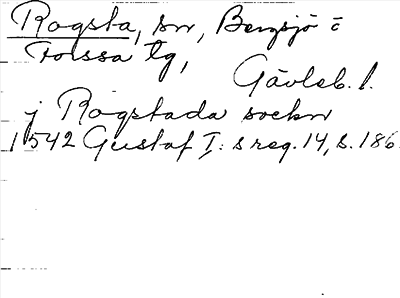 Rogsta, sn, Bergsjö o
Forssa tg,
Gävleb. l.
j Rogstada sockn
1542 Gustaf I: s reg. 14, s. 186